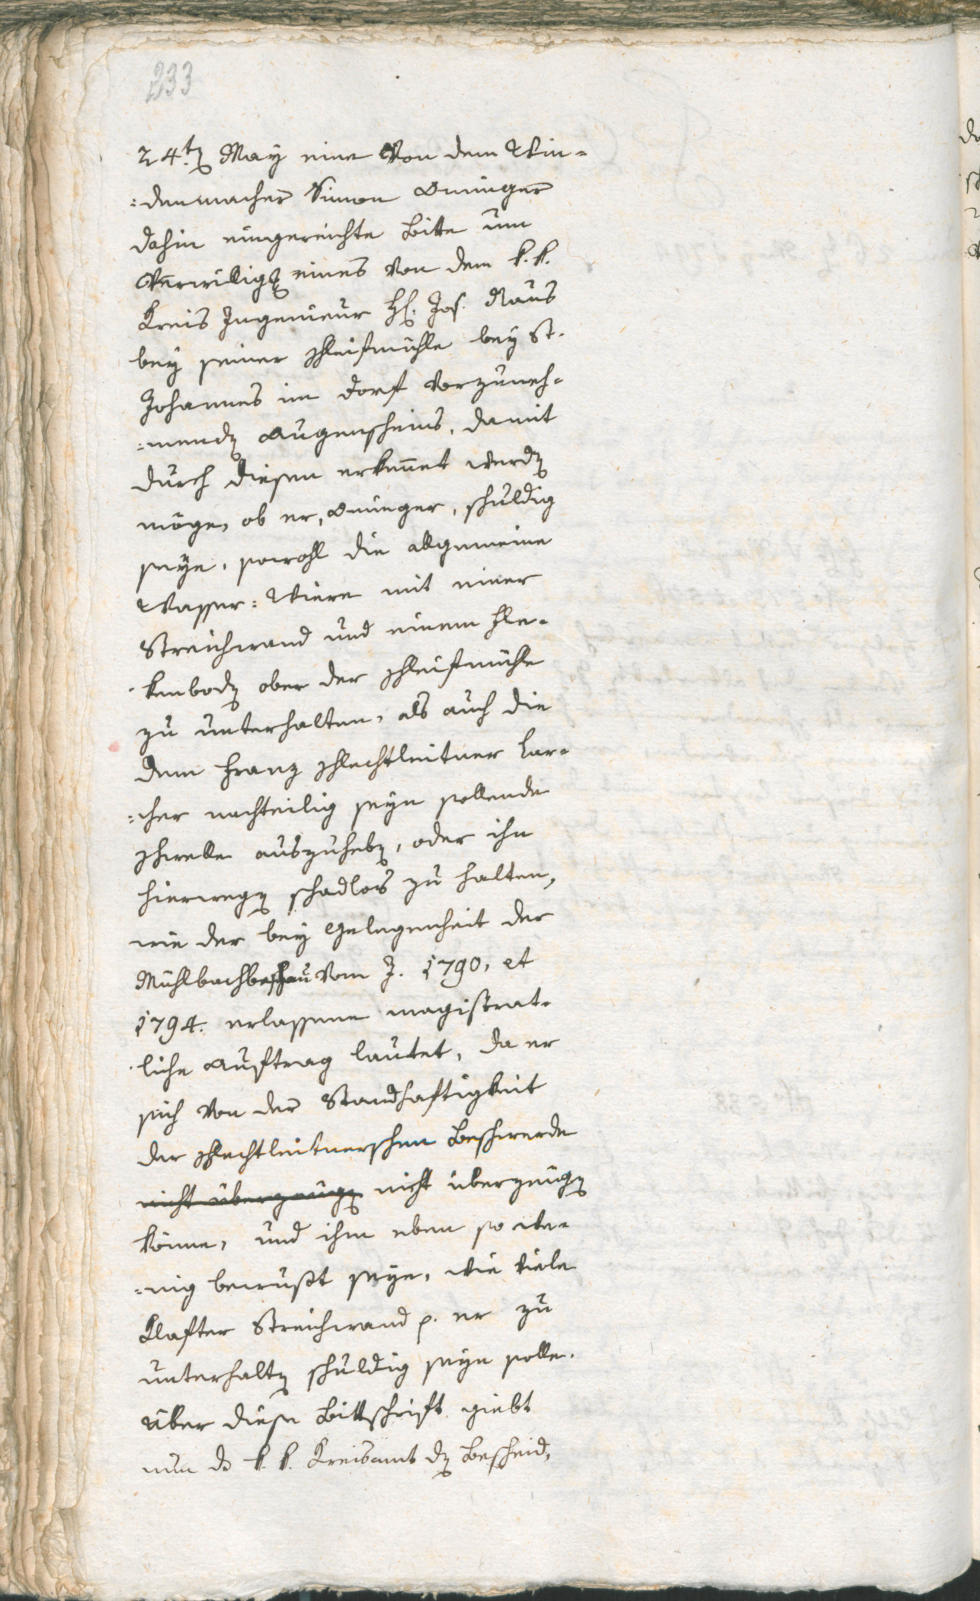 233
24tn May eine Von dem Win-
=denmacher Simon Aninger
dahin eingereichte Bitte um
Verwilligg eines Von dem k. k.
Kreis Ingenieur H. Jos. Naus
bey seiner Schleifmühle bey St.
Johannes im Dorf Vorzuneh-
=menden Augenscheins, damit
durch diesen erkennet werden
möge, ob er, Aninger, schuldig
seye, sowohl die allgemeine
Wasser=Wiere mit einer
Streichwand und einem Fle-
kenboden ober der Schleifmühle
zu unterhalten, als auch die
dem Franz Schlechtleitner Lar-
=cher nachteilig seyn sollende
Schwelle auszuheben, oder ihn
hierwegen schadlos zu halten,
wie der bey Gelegenheit der
Mühlbachbeschau Vom J. 1790, et
1794. erlassene magistrat-
liche Auftrag lautet, da er
sich Von der Standhaftigkeit
der Schlechtleitnerschen Beschwerde
nicht überzeugen nicht überzeugen
könne, und ihm eben so we-
=nig bewußt seye, wie Viele
Klafter Streichwand p. er zu
unterhalten schuldig seyn solle.
Über diese Bittschrift giebt
nun das k. k. Kreisamt den Bescheid,